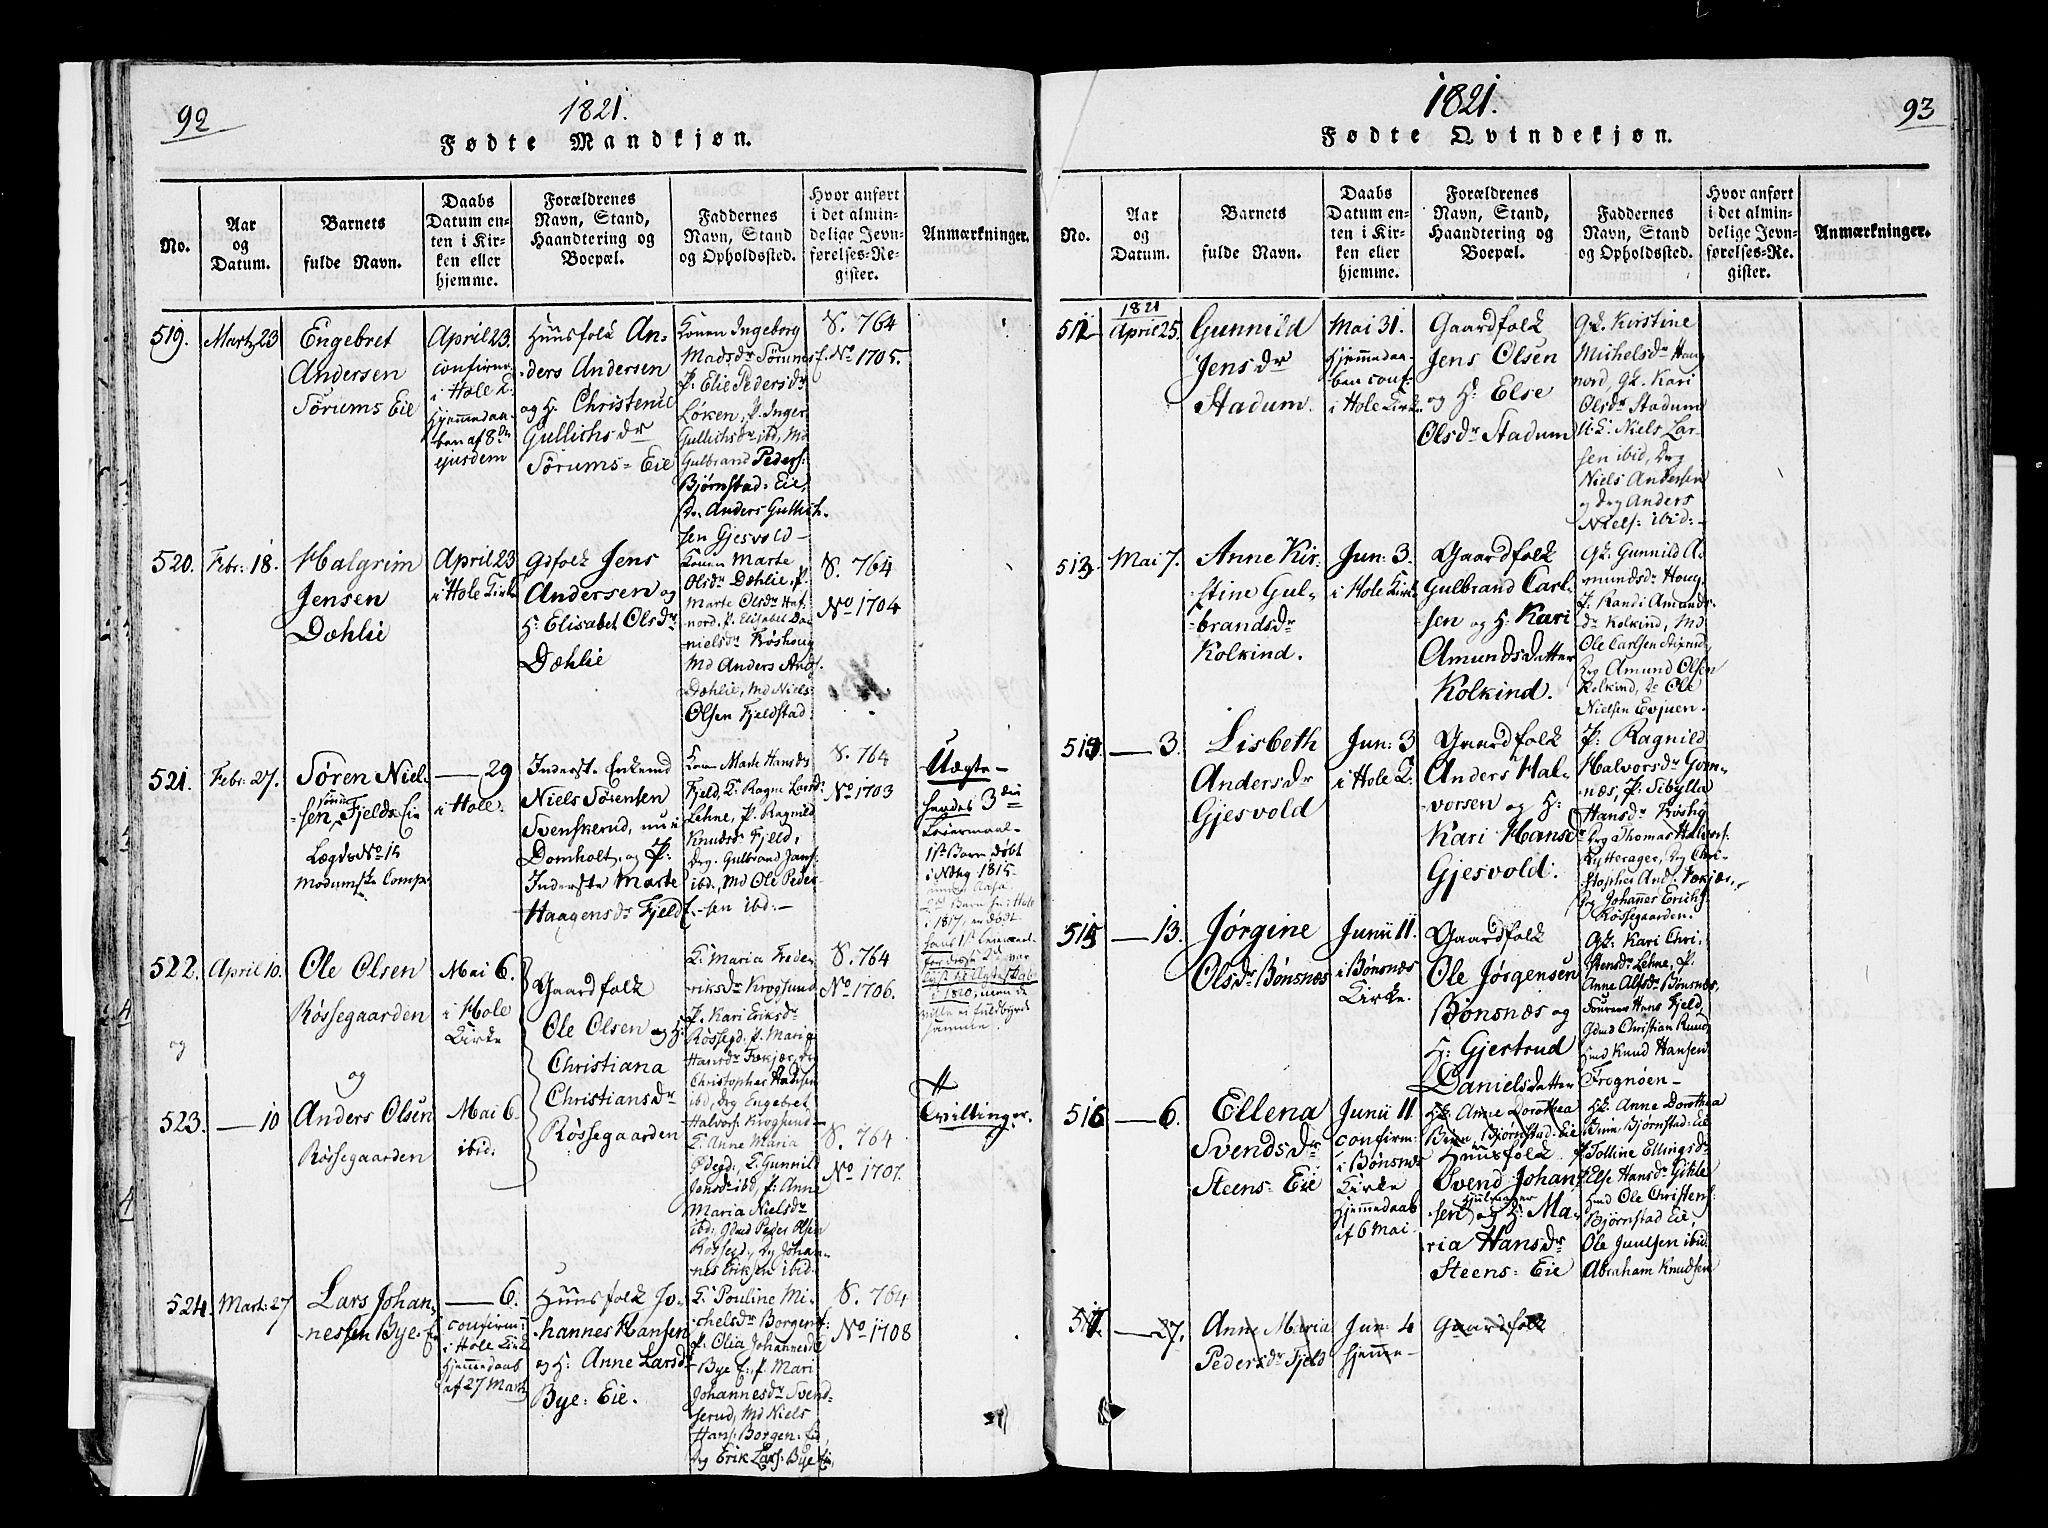 92
1821.
Fødte Mandkjøn.
No.
Aar
og
Datum.
Barnets
fulde Navn.
Daabs
Datum en-
ten i Kir-
ken eller
hjemme.
Forældrenes
Navn, Stand,
Haandtering og
Boepæl.
Faddernes
Navn, Stand
og Opholdssted.
Hvor anført
i det almin-
delige Jevn-
førelses-Re-
gister.
Anmærkninger.
519.
Martz 23
Engebret
Andersen
Sørums Eie
April 23.
confirm:
i Hole K.
Hjemmedaa-
ben af 8de
ejusdem
Huusfolk An-
ders Andersen
og H: Christense
Gullichsdr
Sørums-Eie
Konen Ingeborg
Madsdr Sørums E.
P. Elie Pedersdr
Løken, P. Inger
Gullichsdr ibd, Md
Gulbrand Peders:
Bjørnstad-Eie,
Do Anders Gullich-
sen Gjesvold-
S. 764
No 1705.
520.
Febr: 18.
Halgrim
Jensen
Dæhlie
April 23
i Hole Kirke
Gdfolk Jens
Andersen og
H: Elisabet Olsdr
Dæhlie
Konen Marte
Olsdr Dæhlie, P.
Marte Olsdr Haf-
nord, P. Elisabet Da-
nielsdr Røshoug
Md Anders Ands.
Dæhlie, Md Niels
Olsen Fjeldstad.
S. 764
No 1704
521.
Febr: 27.
Søren Niel-
sen Fjelds Eie
Lægds No 14
Modumske Comp.
—29
i Hole.
Inderst. Enkemd
Niels Sørensen
Svenskerud, nu i
Domholt, og P:
Inderste Marte
Haagensdr Fjeld E.
Kone Marte Hansdr
Fjeld, K. Ragne Larsd:
Lehne, P. Ragnild
Knudsdr Fjeld,
Drg. Gulbrand Jans:
ibd, Md Ole Peder-
sen ibd:-
S. 764
No 1703
Uægte-
hendes 3die
Leiermaal-
1st Barn, døbt
i Nkg 1815
2det Barn f. i Hole
i 1817, er dødt
522.
April 10.
Ole Olsen
Røssegaarden
og
Mai 6.
i Hole
Kirke
Gaardfolk
Ole Olsen og H:
Christiana
Christiansdr
Røssegaarden
K. Maria Frede-
riksdr Kroglund
P. Kari Eriksdr
Røssegd, P. Maria
Hansdr Fækjær, Drg
Christopher Hansen
ibd, Drg Engebret
Halvors: Kroglund-
S. 764
No 1706.
523.
—10
og
Anders Olsen
Røssegaarden
Mai 6.
ibid.
K. Anne Maria
K. Gunnild
Jensdr ibd, P: Anne
Maria Nielsdr
ibd; Gdmd Peder Olsen
Røssegd, Drg Johan-
nes Eriksen ibid.
S. 764
No 1707.
Tvillinger.
524.
Mart: 27
Lars Johan-
nessen Bye-Eie
—6.
confirm:
i Hole Kirke
Hjemmedaab
af 27 Martz
Huusfolk Jo-
hannes Hansen
og H: Anne Larsdr
Bye: Eie.
K. Pouline Mi-
chelsdr Borgen E:
P. Olia Johannesdr
Bye E:, P. Mari
Johannesdr Svend-
serud, Md Niels
Hans: Borgen: Eie,
Drg Erik Lars. Bye Eie,
S. 764
No 1708
1821.
93
Fødte Qvindekjøn.
No.
Aar
og
Datum.
Barnets
fulde Navn.
Daabs
Datum en-
ten i Kir-
ken eller
hjemme.
Forældrenes
Navn, Stand,
Haandtering og
Boepæl.
Faddernes
Navn, Stand
og Opholdssted.
Hvor anført
i det almin-
delige Jevn-
førelses-Re-
gister.
Anmærkninger.
512
1821
April 25.
Gunnild
Jensdr
Stadum.
Mai 31.
Hjemmedaa-
ben conf:
i Hole Kirke
Gaardfolk
Jens Olsen
og H: Else
Olsdr Stadum
Gk. Kirstine
Michelsdr Haug
nord, Gk. Kari
Olsdr Stadum
Niels Lar-
sen ibid, Drg
Niels Andersen
og Drg Anders
Niels: ibid:-
513.
Mai 7.
Anne Kir-
stine Gul-
brandsdr
Kolkind.
Jun: 3.
i Hole Kirke
Gaardfolk
Gulbrand Carl-
sen og H: Kari
Amundsdatter
Kolkind.
Gk: Gunnild A-
mundsdr Houg,
P. Randi Amunds-
dr Kolkind, Md
Ole Carlsen
Drg Amund Olsen
Kolkind, Do Ole
Nielsen Evjuen.
514
—3.
Lisbeth
Andersdr
Gjesvold
Jun: 3
i Hole K.
Gaardfolk
Anders Hal-
vorsen og H:
Kari Hansdr
Gjesvold.
P: Ragnild
Halvorsdr Gom-
næs, P: Sibylla
Hansdr Røshg
Drg Thomas Halvors:
Rytterager, Drg Chri-
stopher And:
Drg Johannes Erichs:
Røssegaarden.
515
—13.
Jørgine
Olsdr Bønsnæs
Junii 11.
i Bønsnæs
Kirke.
Gaardfolk
Ole Jørgensen
Bønsnæs og
H: Gjertrud
Danielsdatter
Gk: Kari Chri-
stensdr Lehne, P.
Anne Alfsdr Bønsnæs,
Hans Fjeld,
Gdmd Christian Rund
Hmd Knud Hansen
Frognøen-
516
—6.
Ellena
Svendsdr
Steens-Eie
Junii 11.
confirm:
i Bønsnæs
Kirke
Hjemmedaab
af 6 Mai.
Hk. Anne Dorothea
Bjørnstad-Eie
Huusfolk
Svend Johan-
sen og H: Ma-
ria Hansdr
Steens-Eie
Hk. Anne Dorothea
Bjørnstad-Eie
P. Tolline Ellingsdr
Else Hansdr Gihle
Hmd Ole Christens:
Bjørnstad Eie,
Ole Juulsen ibid.
Abraham Knudsen
517.
—27.
Anne Maria
Pedersdr Fjeld
Jun: 4
hjemme-
Gaardfolk